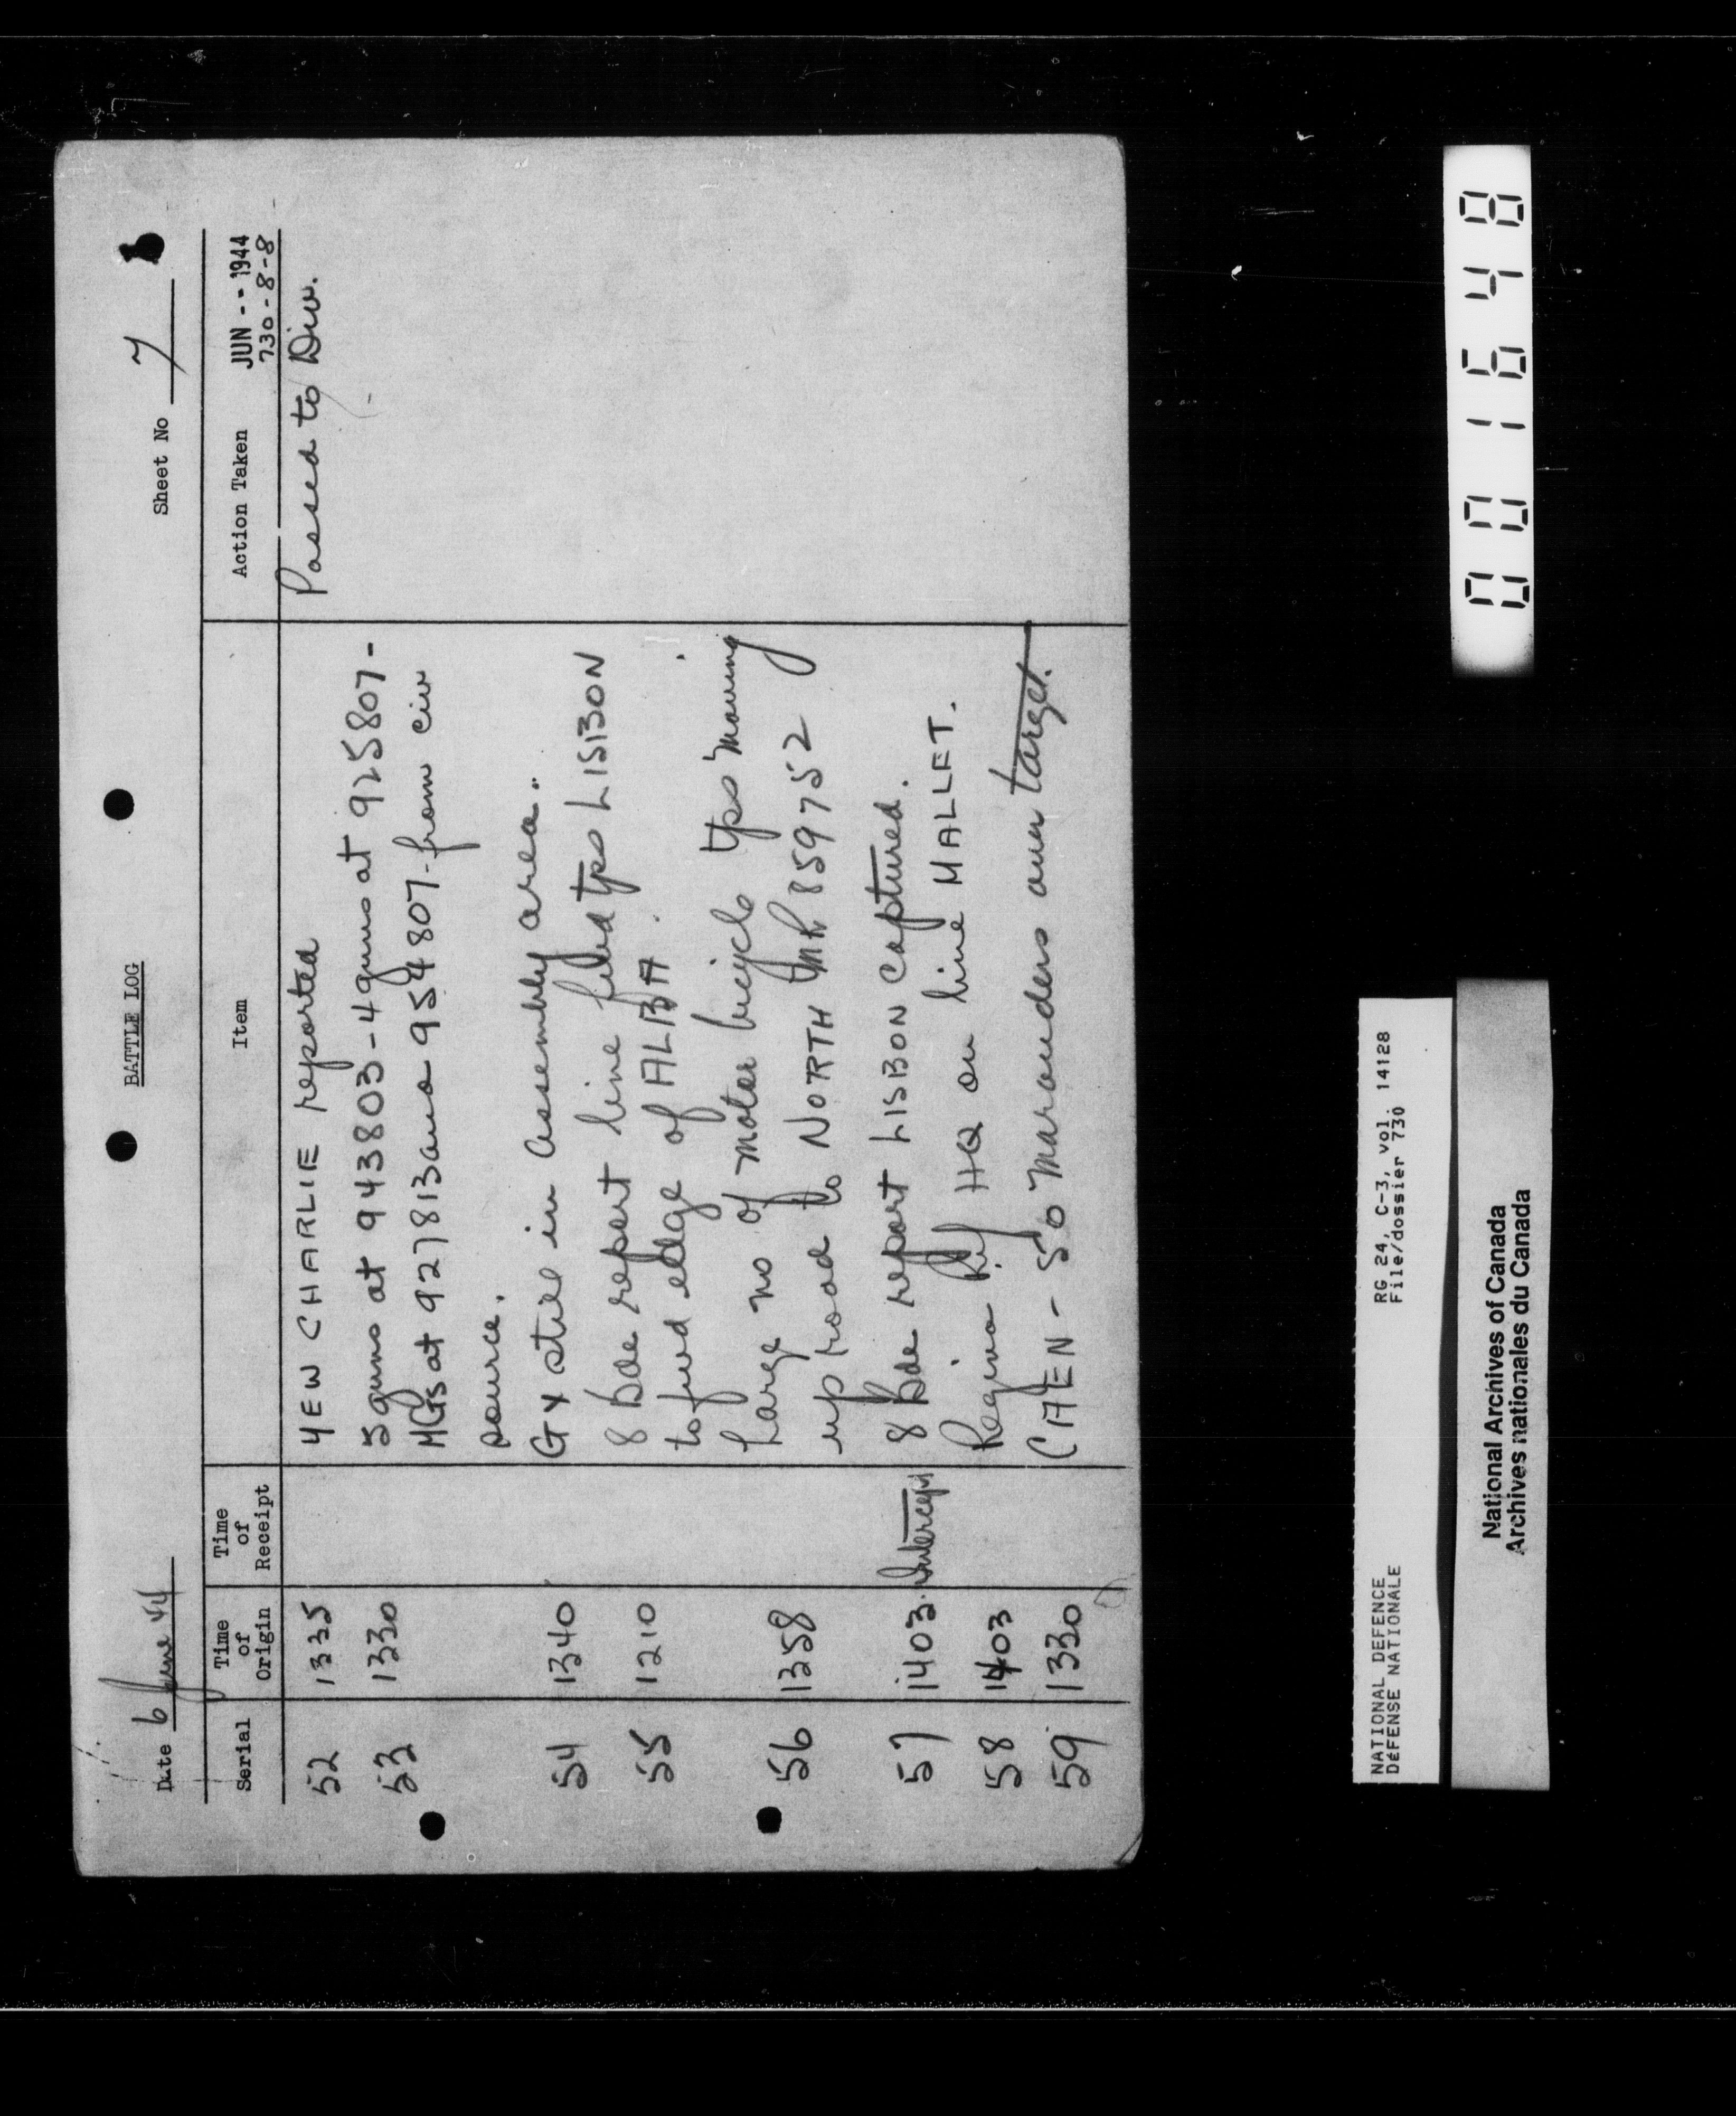 BATTLE LOG
Date 6 June 44
Sheet No 7
Serial
Time of Origin
Time of Receipt
Item
Action Taken
JUN -- 1944
730-8-8
52 1335 YEW CHARLIE reported Passed to Div.
53 1330 5 guns at 943803 - 4 guns at 925807 -
MGs at 927813 and 954807 - from civ
source.
54 1340 Gx still in assembly area.
55 1210 8 Bde report line fwd tps LISBON
to fwd edge of ALBA.
56 1358 Large no of motor bicycle tps moving
up road to NORTH MR 859752
57 1403 Intercept 8 Bde report LISBON captured.
58 1403 Regina Rif HQ on line MALLET.
59 1330 CAEN - 50 Marauders over target.
0001648
NATIONAL DEFENCE RG 24, C-3, vol. 14128
DÉFENSE NATIONALE File/dossier 730
National Archives of Canada
Archives nationales du Canada